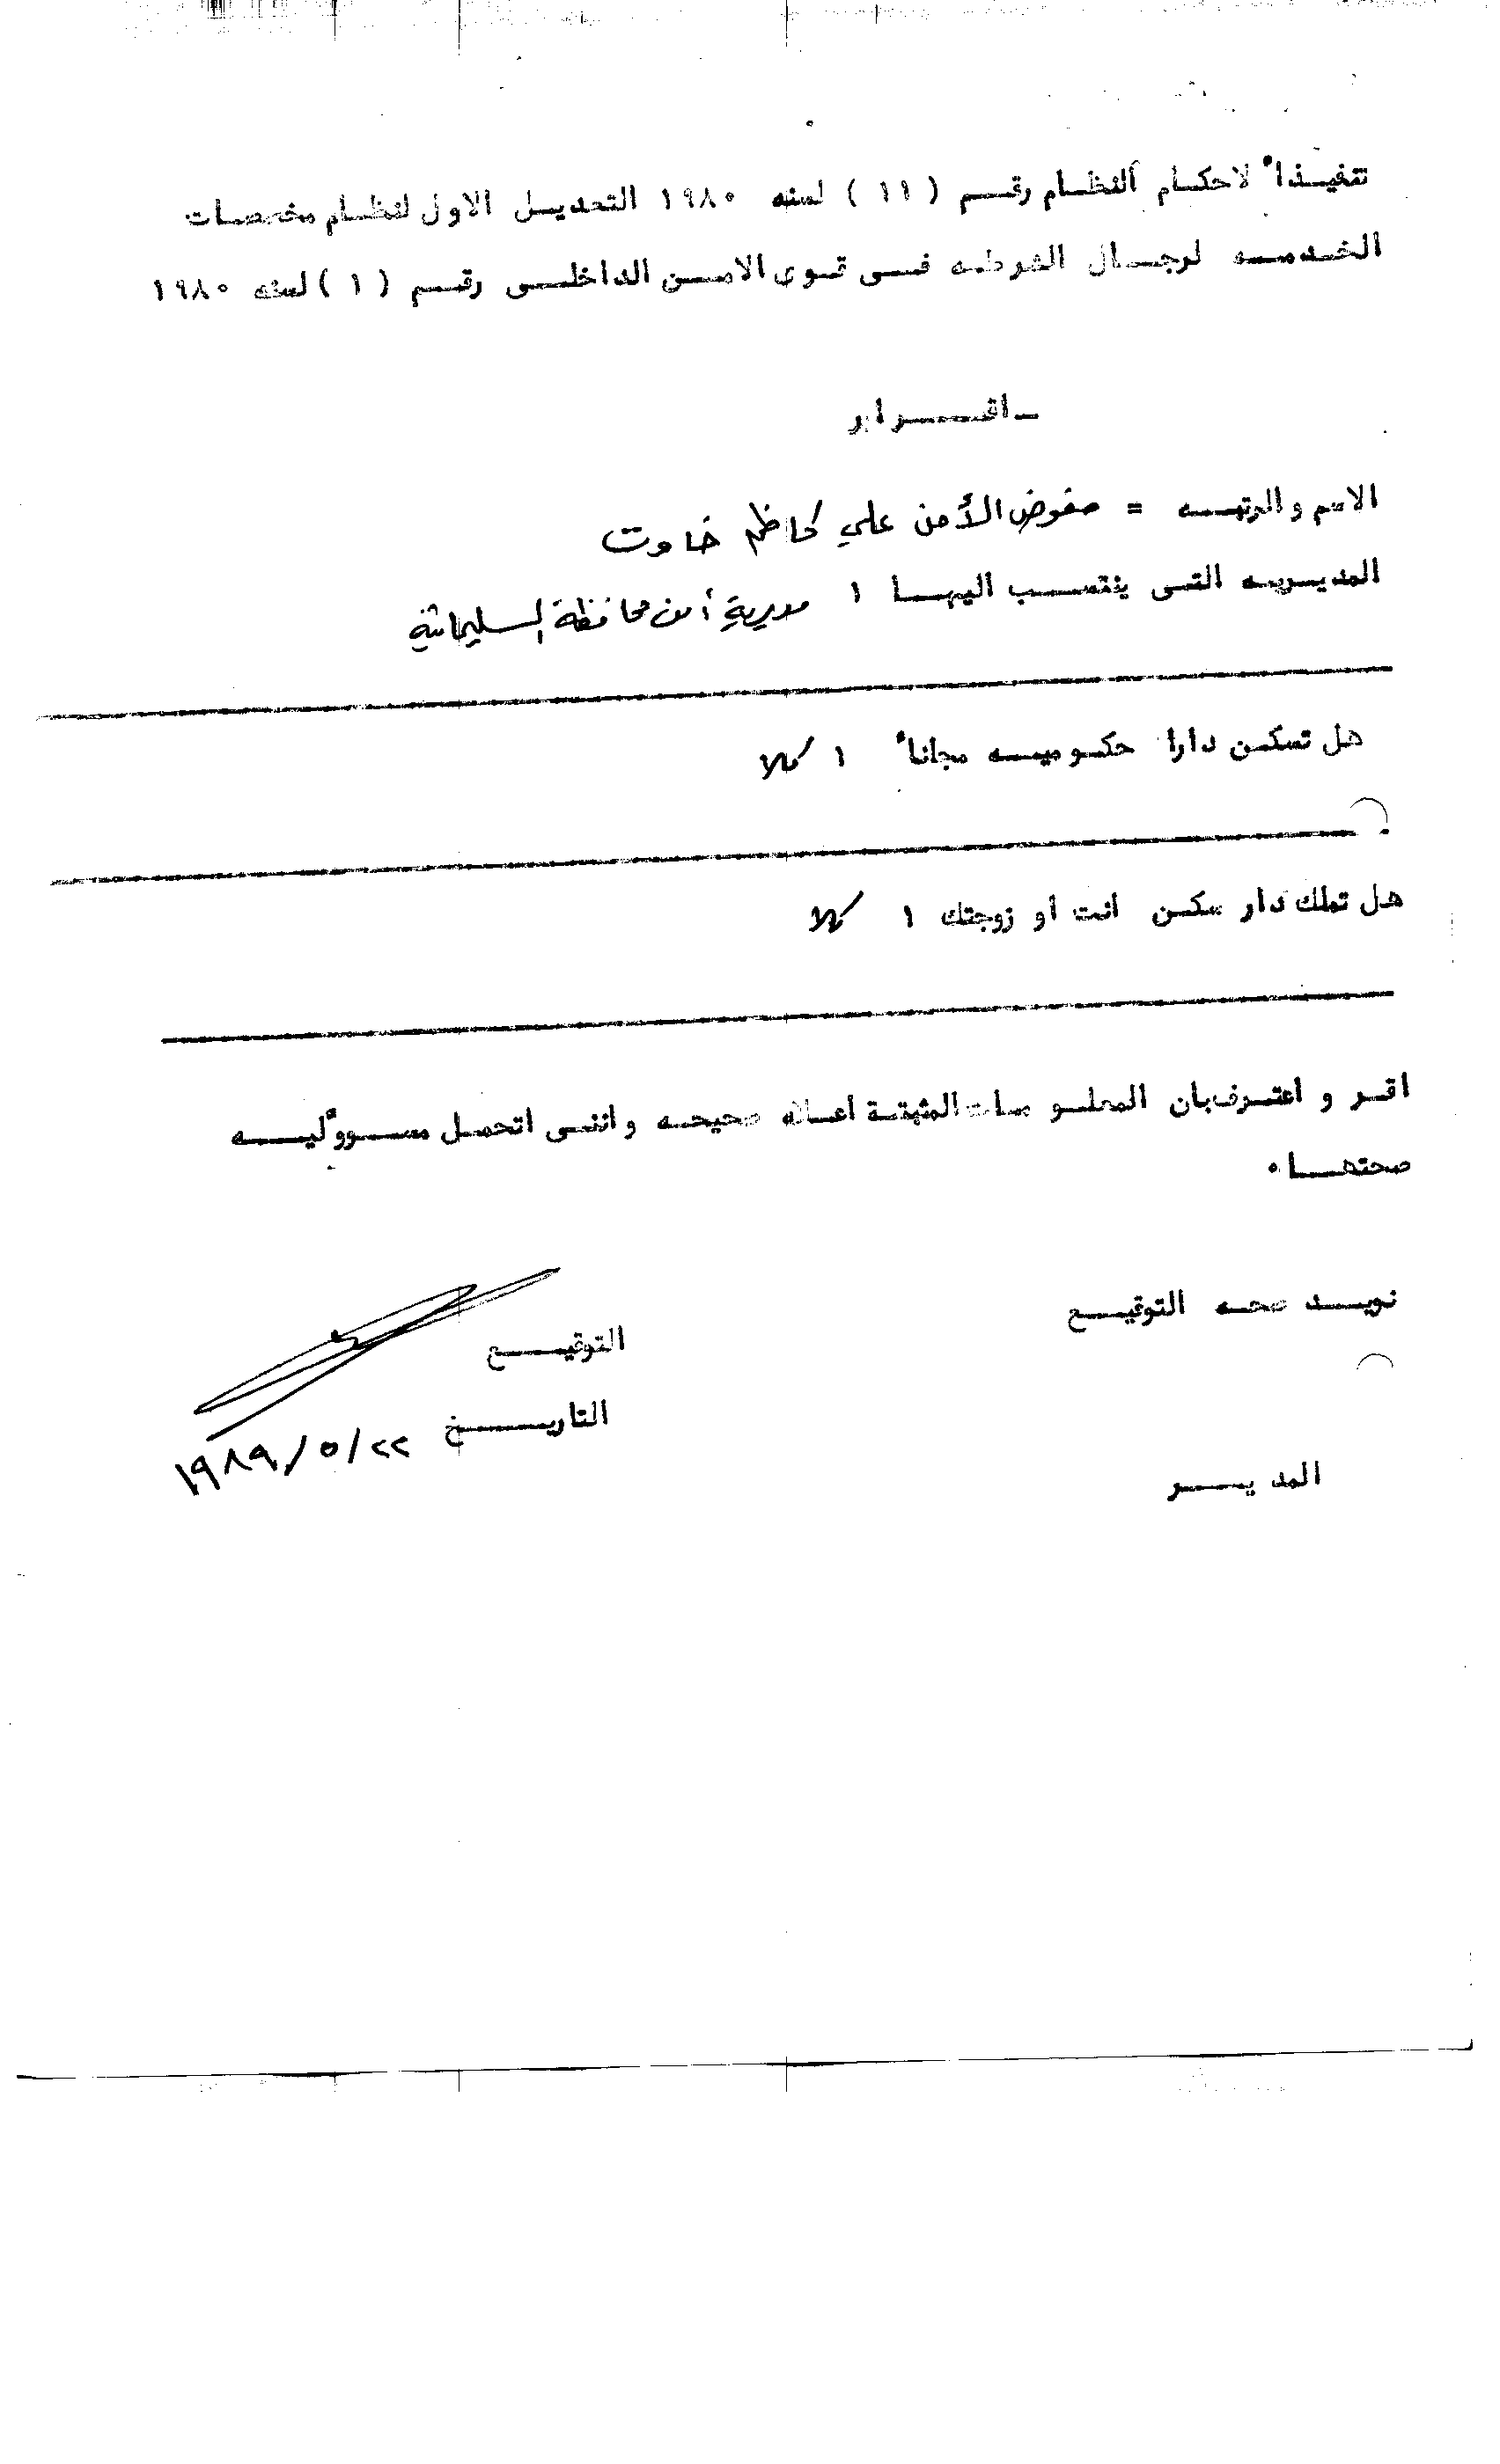 تنفيذا لاحكام النظام رقم ( ١١ ) لسنه ١٩٨٠ التعديل الاول لنظام مخصصات
الخدمه لرجال الشرطه فى قوى الامن الداخلى رقم ( ١ ) لسنه ١٩٨٠
ـ اقرار
الاسم والرتبه = مفوض الأمن علي كاظم خاوت
المديريه التى ينتسب اليها ١ مديرية أمن محافظة السليمانية
هل تسكن دارا حكوميه مجانا ١ كلا
هل تملك دار سكن انت او زوجتك ١ كلا
اقر و اعترف بان المعلومات المثبتة اعلاه صحيحه واننى اتحمل مسوولّيه
صحتها ٠
نويد صحه التوقيع
التوقيع
التاريخ ٢٢/٥/١٩٨٩
المدير